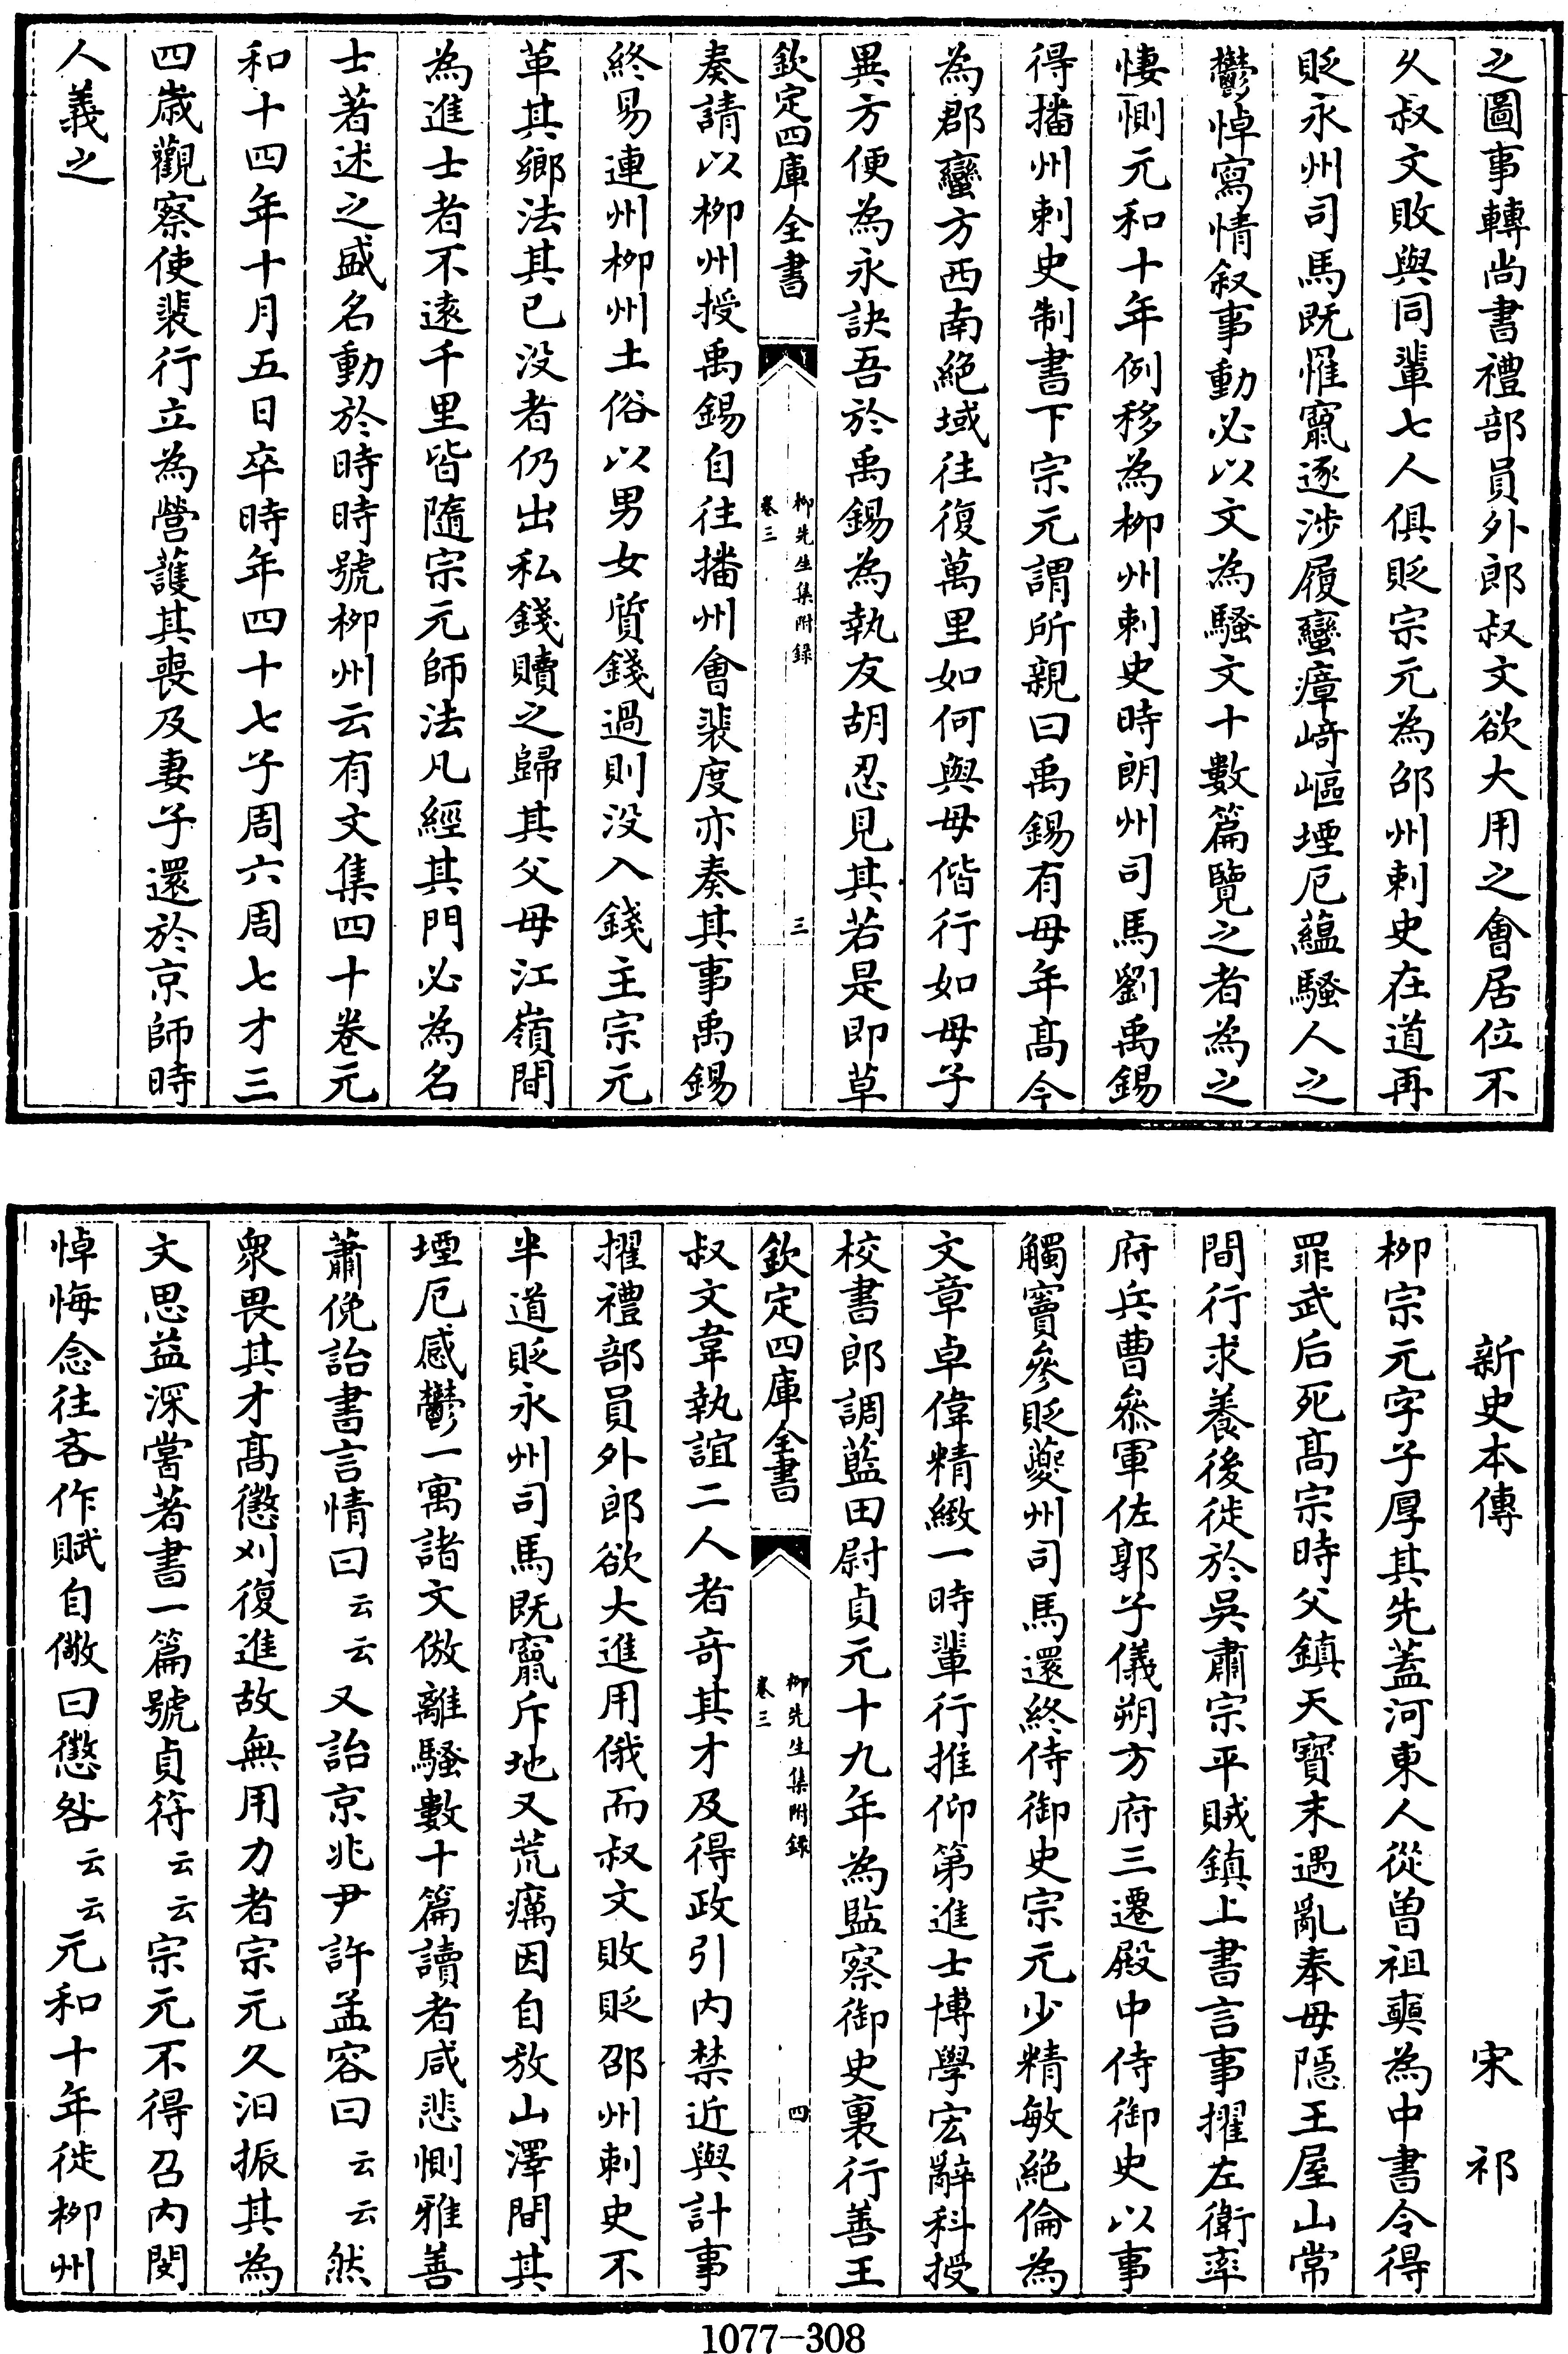 之圖事轉尚書禮部員外郎叔文欲大用之會居位不
乆叔文敗與同輩七人俱貶宗元為邵州刺史在道再
貶永州司馬既罹竄逐涉履蠻瘴崎嶇堙厄蘊騷人之
鬱悼寫情叙事動必以文為騷文十數篇覽之者為之
悽惻元和十年例移為柳州刺史時朗州司馬劉禹錫
得播州刺史制書下宗元謂所親曰禹錫有母年髙今
為郡蠻方西南絶域往復萬里如何與母偕行如母子
異方便為永訣吾於禹錫為執友胡忍見其若是即草
欽定四庫全書
柳先生集附録
卷三
三
奏請以柳州授禹錫自往播州會裴度亦奏其事禹錫
終易連州柳州土俗以男女質錢過則没入錢主宗元
革其鄉法其已没者仍出私錢贖之歸其父母江嶺間
為進士者不逺千里皆隨宗元師法凡經其門必為名
士著述之盛名動於時時號柳州云有文集四十卷元
和十四年十月五日卒時年四十七子周六周七才三
四歲觀察使裴行立為營護其喪及妻子還於京師時
人義之
新史本傳 宋祁
柳宗元字子厚其先蓋河東人從曽祖奭為中書令得
罪武后死髙宗時父鎮天寳末遇亂奉母隱王屋山常
間行求養後徙於吳肅宗平賊鎮上書言事擢左衛率
府兵曹叅軍佐郭子儀朔方府三遷殿中侍御史以事
觸竇參貶夔州司馬還終侍御史宗元少精敏絶倫為
文章卓偉精緻一時輩行推仰第進士博學宏辭科授
校書郎調藍田尉貞元十九年為監察御史裏行善王
欽定四庫全書
柳先生集附録
卷三
四
叔文韋執誼二人者奇其才及得政引内禁近與計事
擢禮部員外郎欲大進用俄而叔文敗貶邵州刺史不
半道貶永州司馬既竄斥地又荒癘因自放山澤間其
堙厄感鬱一寓諸文倣離騷數十篇讀者咸悲惻雅善
蕭俛詒書言情曰云云又詒京兆尹許孟容曰云云然
衆畏其才髙懲刈復進故無用力者宗元久汩振其為
文思益深嘗著書一篇號貞符云云宗元不得召内閔
悼悔念往吝作賦自儆曰懲咎云云元和十年徙柳州
1077-308